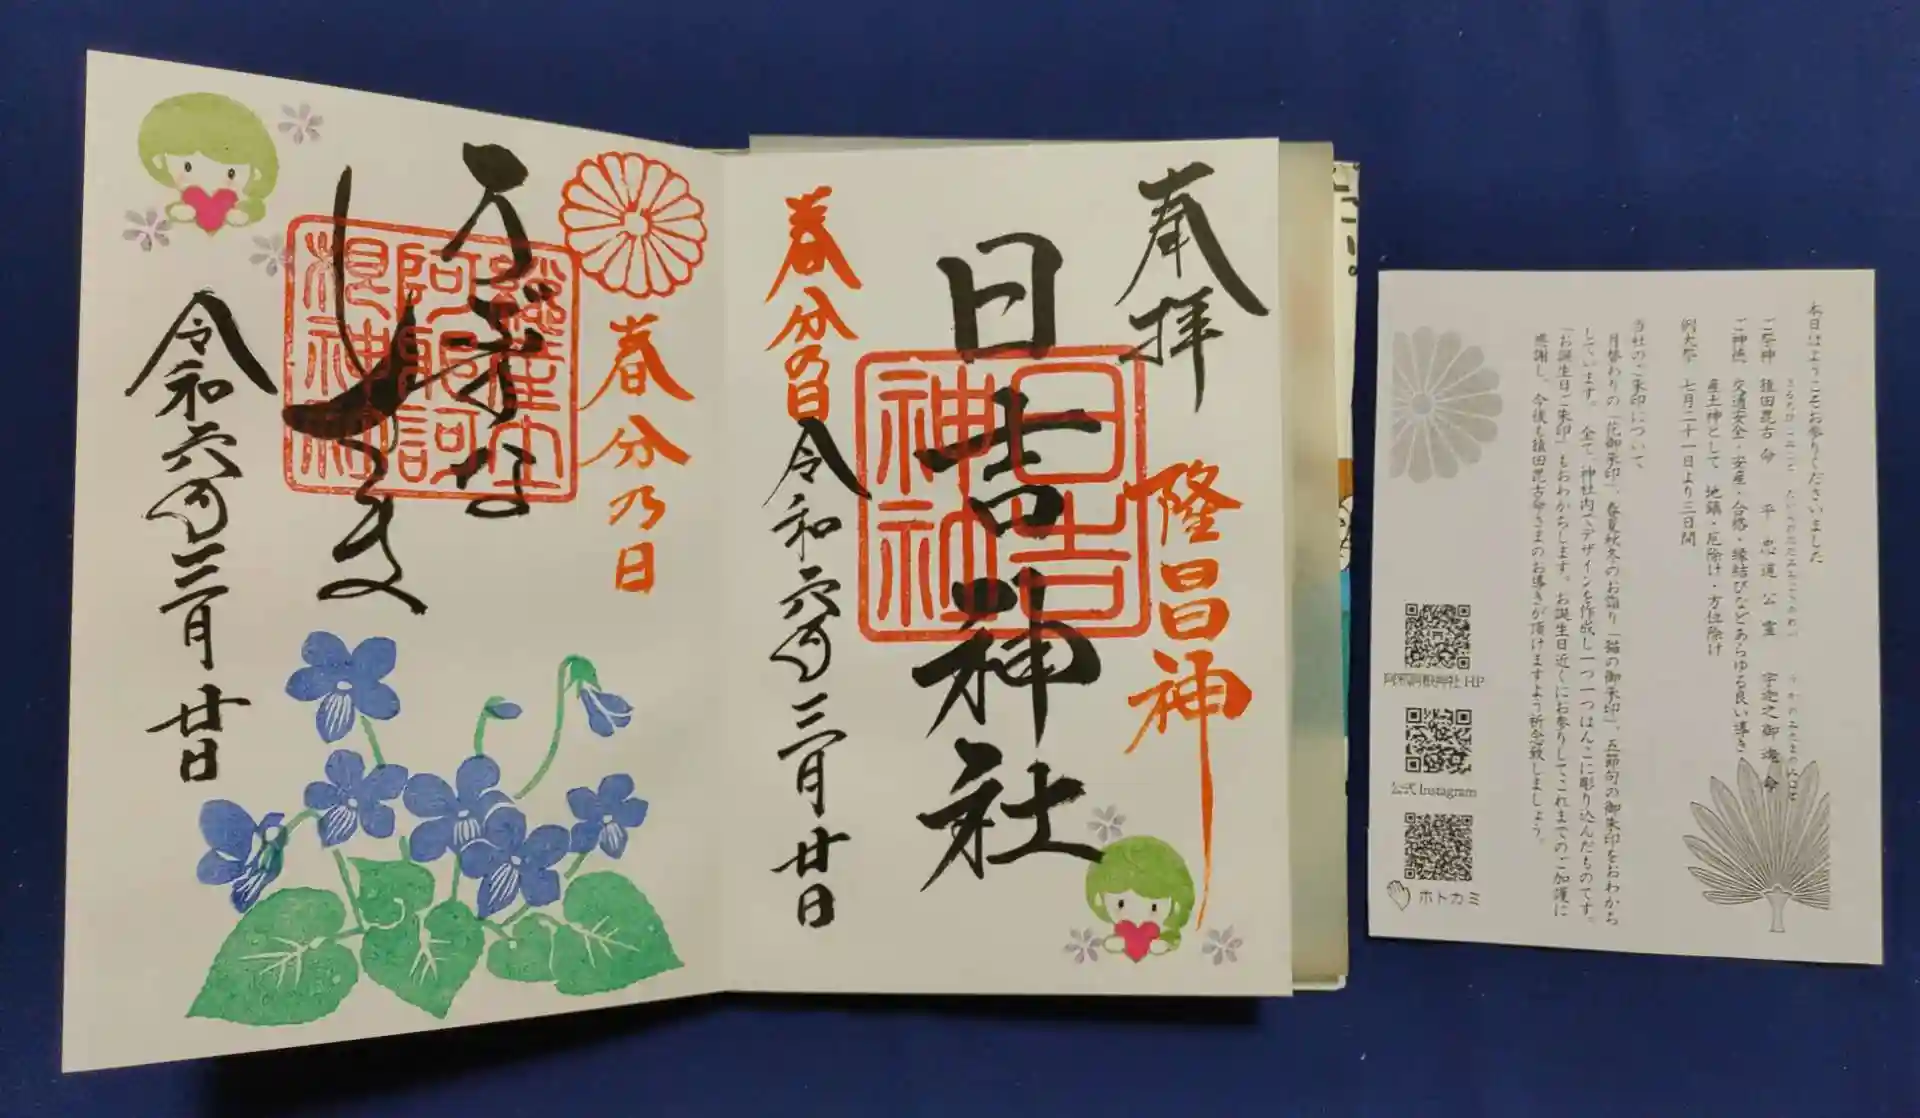 奉拝
隆昌神
日吉神社
日吉
神社
春分の日
令和六年三月廿日
春分乃日
うぶすな
総産土
阿邪訶
根神社
令和六年三月廿日
本日はようこそお参りくださいました
ご祭神 猿田毘古命 平忠道公霊 宇迦之御魂命
ご神徳 交通安全・安産・合格・縁結びなどあらゆる良い導き
産土神として 地鎮・厄除け・方位除け
例大祭 七月二十一日より三日間
当社のご朱印について
月替わりの「花御朱印」、春夏秋冬のお詣り「猫の御朱印」、五節句の御朱印をおわかち
しています。 全て、神社内でデザインを作成し一つ一つはんこに彫り込んだものです。
「お誕生日ご朱印」もおわかちします。お誕生日近くにお参りしてこれまでのご加護に
感謝し、今後も猿田毘古命さまのお導きが頂けますよう祈念致しましょう。
阿邪訶根神社 HP
公式 Instagram
ホトカミ